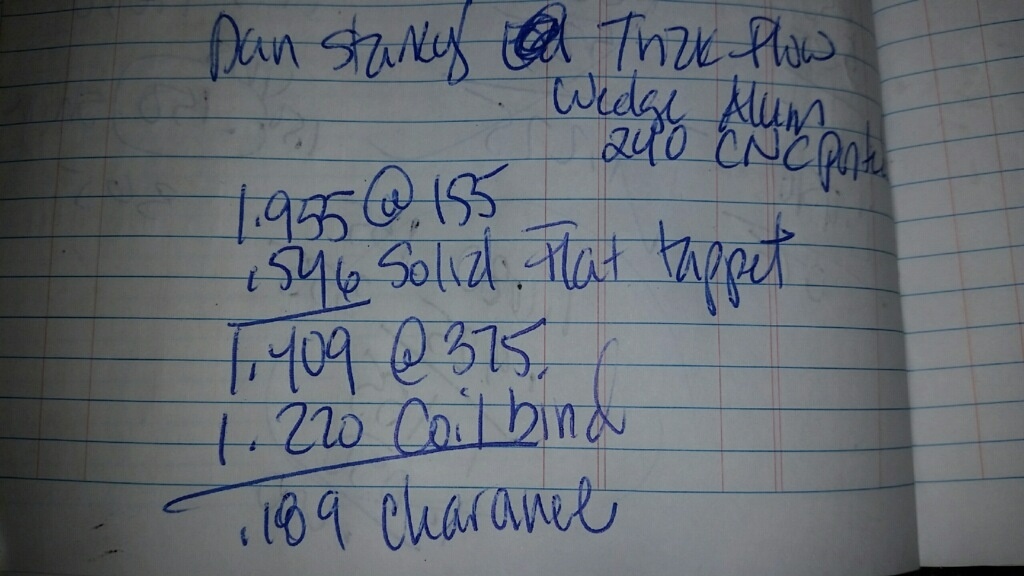 Dan stanley Trick Flow
Wedge Alum
240 CNC Porte
1.955 @ 155
.546 Solid. Flat tappet
1.409 @ 375.
1.220 Coil bind
.189 clearance